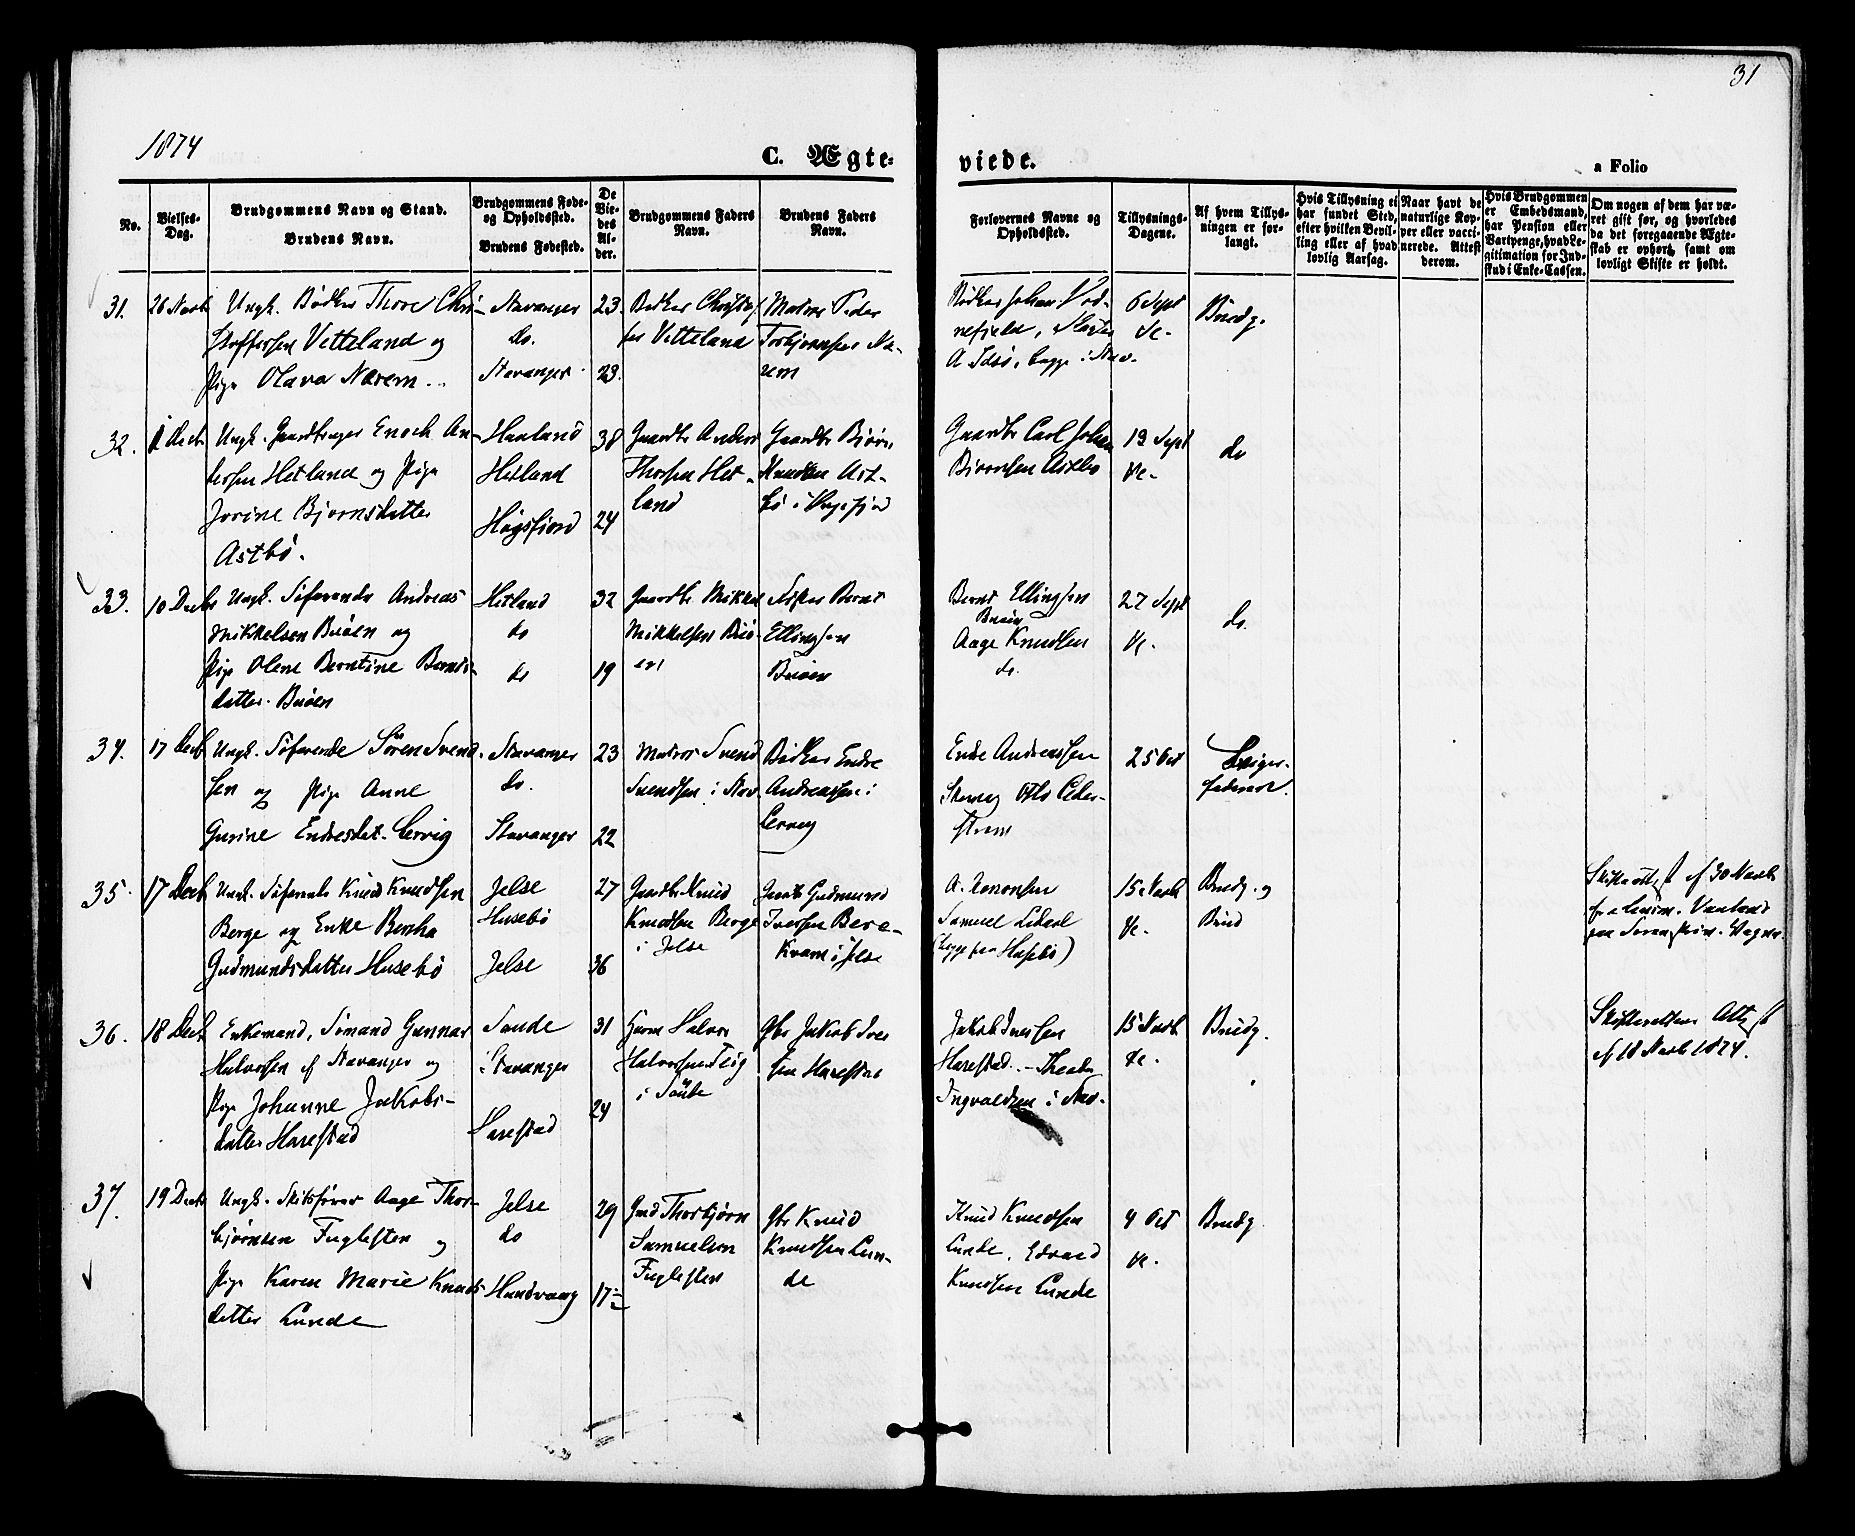 31
1874
C. Ægte-
viede.
a Folio
No.
Vielses-
Dag.
Brudgommens Navn og Stand.
Brudens Navn.
Brudgommens Føde-
og Opholdssted.
Brudens Fødested.
De
Vie-
des
Al-
der.
Brudgommens Faders
Navn.
Brudens Faders
Navn.
Forlovernes Navne og
Opholdssted.
Tillysnings-
Dagene.
Af hvem Tillys-
ningen er for-
langt.
Hvis Tillysning ei
har fundet Sted,
efter hvilken Bevil-
ling eller af hvad
lovlig Aarsag.
Naar havt de
naturlige Kop-
per eller vacci-
nerede. Attest
derom.
Hvis Brudgommen
er Embedsmand,
har Pension eller
Vartpenge, hvad Le-
gitimation for Ind-
skud i Enke-Cassen.
Om nogen af dem har væ-
ret gift før, og hvorledes
da det foregaaende Ægte-
skab er ophørt, samt om
lovligt Skifte er holdt.
31.
26 Novb
Ungk. Bødker Thore Chri-
stoffersen Vetteland og
Pige Olava Nærem.
Stavanger
do.
Stavanger
23.
23.
Bødker Christof
sen Vetteland
Matros Peder
Torbjørnsen Næ-
rem
Bødker Johan
A Idsø, begge i Stav.
6 Sept
Brudg.
32.
1 Decb
Ungk. Gaardbruger Enoch An-
dersen Hetland og Pige
Jorine Bjørnsdatter
Astbø.
Hetland
Høgsfjord
38
24
Gaardbr Anders
Thorsen Het-
land
Gaardbr Bjørn
Knudsen Ast-
bø i Høgsfjord
Gaardbr Carl Johan
Bjørnsen Astbø
19 Sept
do
33.
10 Decbr
Ungk. Søfarende Andreas
Mikkelsen Buøen og
Pige Olene Berntine Bernts-
datter Buøen
Hetland
do
do
32
19
Gaardbr Mikkel
Mikkelsen Buø-
en
Fisker Bernt
Ellingsen
Buøen
Bernt Ellingsen
Buøen
Aage Knudsen
do.
27 Sept
do.
34.
17 Decb
Ungk. Søfarende Sören Svend-
sen og Pige Anne
Gurine Endresdat. Lervig
Stavanger
do.
Stavanger
23
22
Matros Svend
Svendsen i Stav.
Bødker Endre
Andreassen i
Lervig
Endre Andreassen
Otto Ceder-
strøm
25 Oct
Sviger-
faderen.
35.
17 Decb
Ungk. Søfarende Knud Knudsen
Berge og Enke Bertha
Gudmundsdatter Husebø
Jelse
Husebø
Jelse
27
36
Gaardbr Knud
Knudsen Berge
i Jelse
Gaardb Gudmund
Iversen Bere-
kvam i Jelse
A. Aanonsen
Samuel
(begge paa Husebø)
15 Novb
Brudg. og
Brud
Skifteattest af 30 Novb
36.
18 Decb
Enkemand, Sömand Gunnar
Halvorsen af Stavanger og
Pige Johanne Jakobs-
datter Harestad
Saude
i Stavanger
Harestad
31
24
Halvor
Halvorsen
i Saude
Gbr Jakob Iver
sen Harestad
Jakob Iversen
Harestad. - Theodor
Ingvaldsen i Stav.
15 Novb
Brudg.
Skifterettens Attest
af 18 Novb 1874.
37.
19 Decb
Ungk. Skibsfører Aage Thor-
bjørnsen Fuglesten og
Pige Karen Marie Knuds
datter Lunde
Jelse
do
Hundvaag
29
17½
Gmd Thorbjörn
Samuelsen
Fuglesten
Gbr Knud
Knudsen Lun-
de
Knud Knudsen
Lunde, Edvard
Knudsen Lunde
4 Oct
Brudg